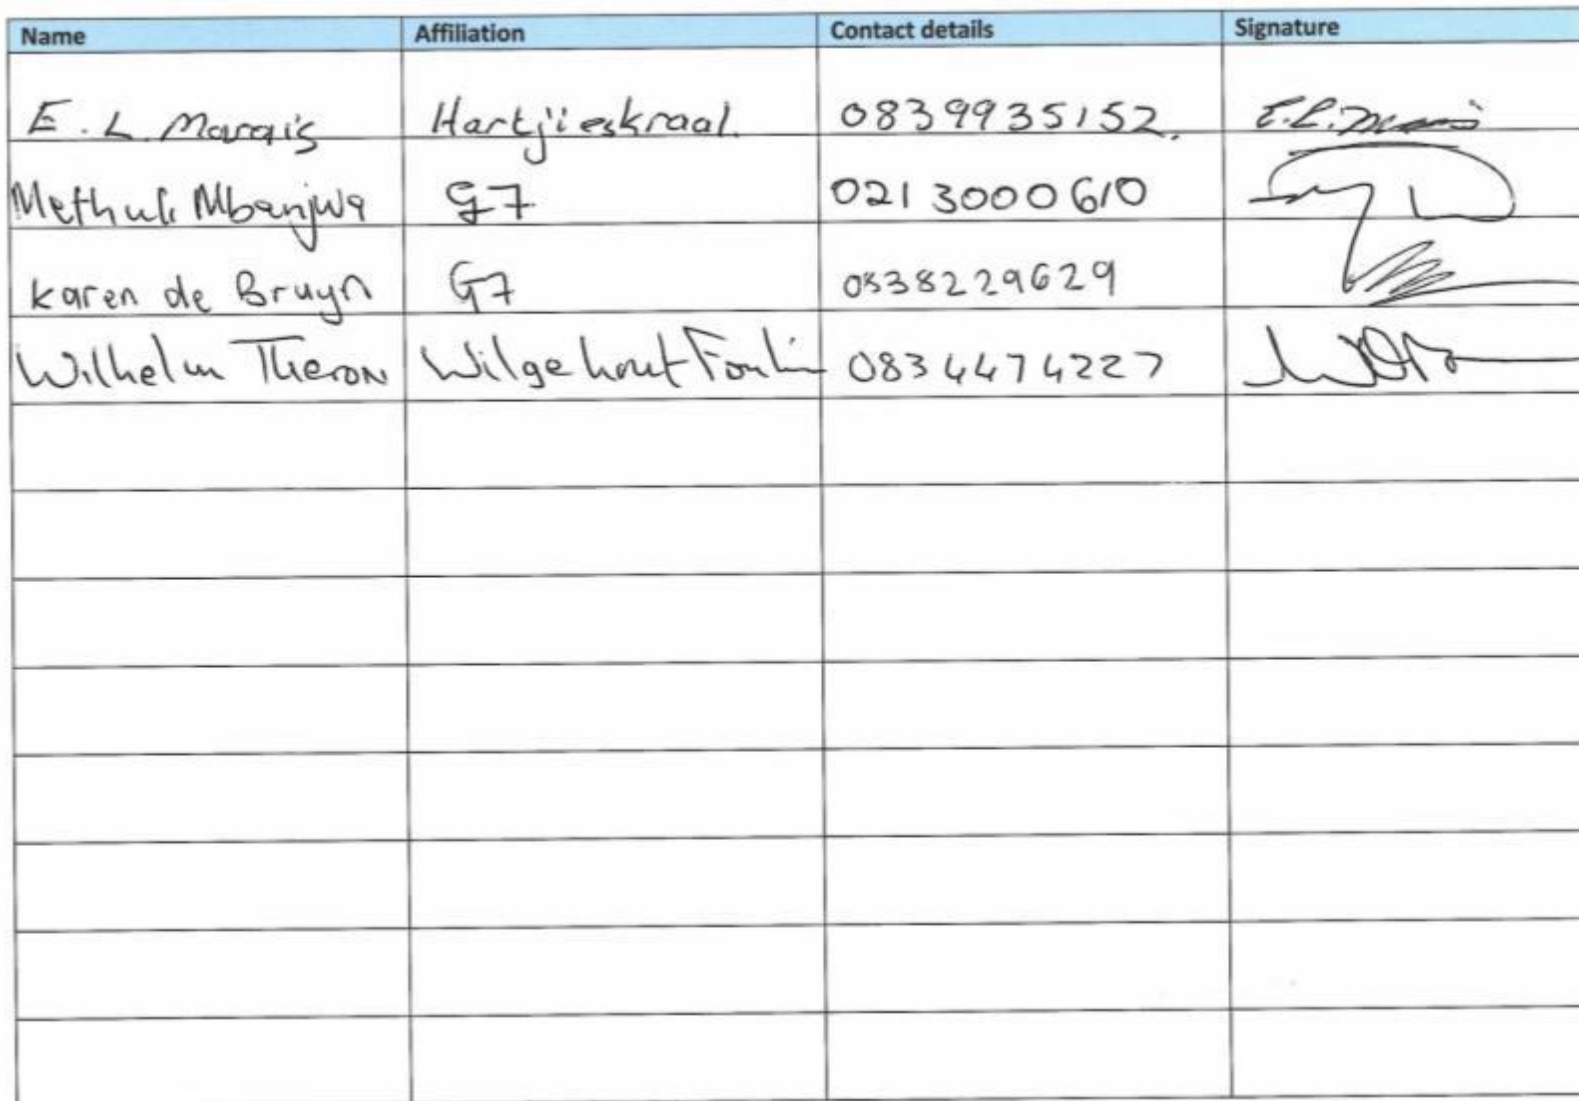 Name Affiliation Contact details Signature
E. L. Marais Hartjieskraal. 0839935152. E.L. Marais
Methuli Mbanjwa G7 021 3000610
Karen de Bruyn G7 0838229629
Wilhelm Theron Wilgehout Fontein 0834474227